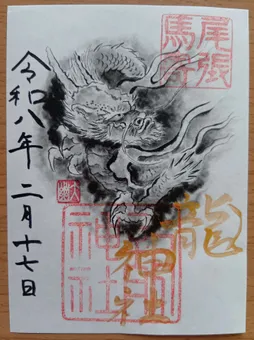 尾張
馬
龍
神
社
神社
令和八年 二月十七日